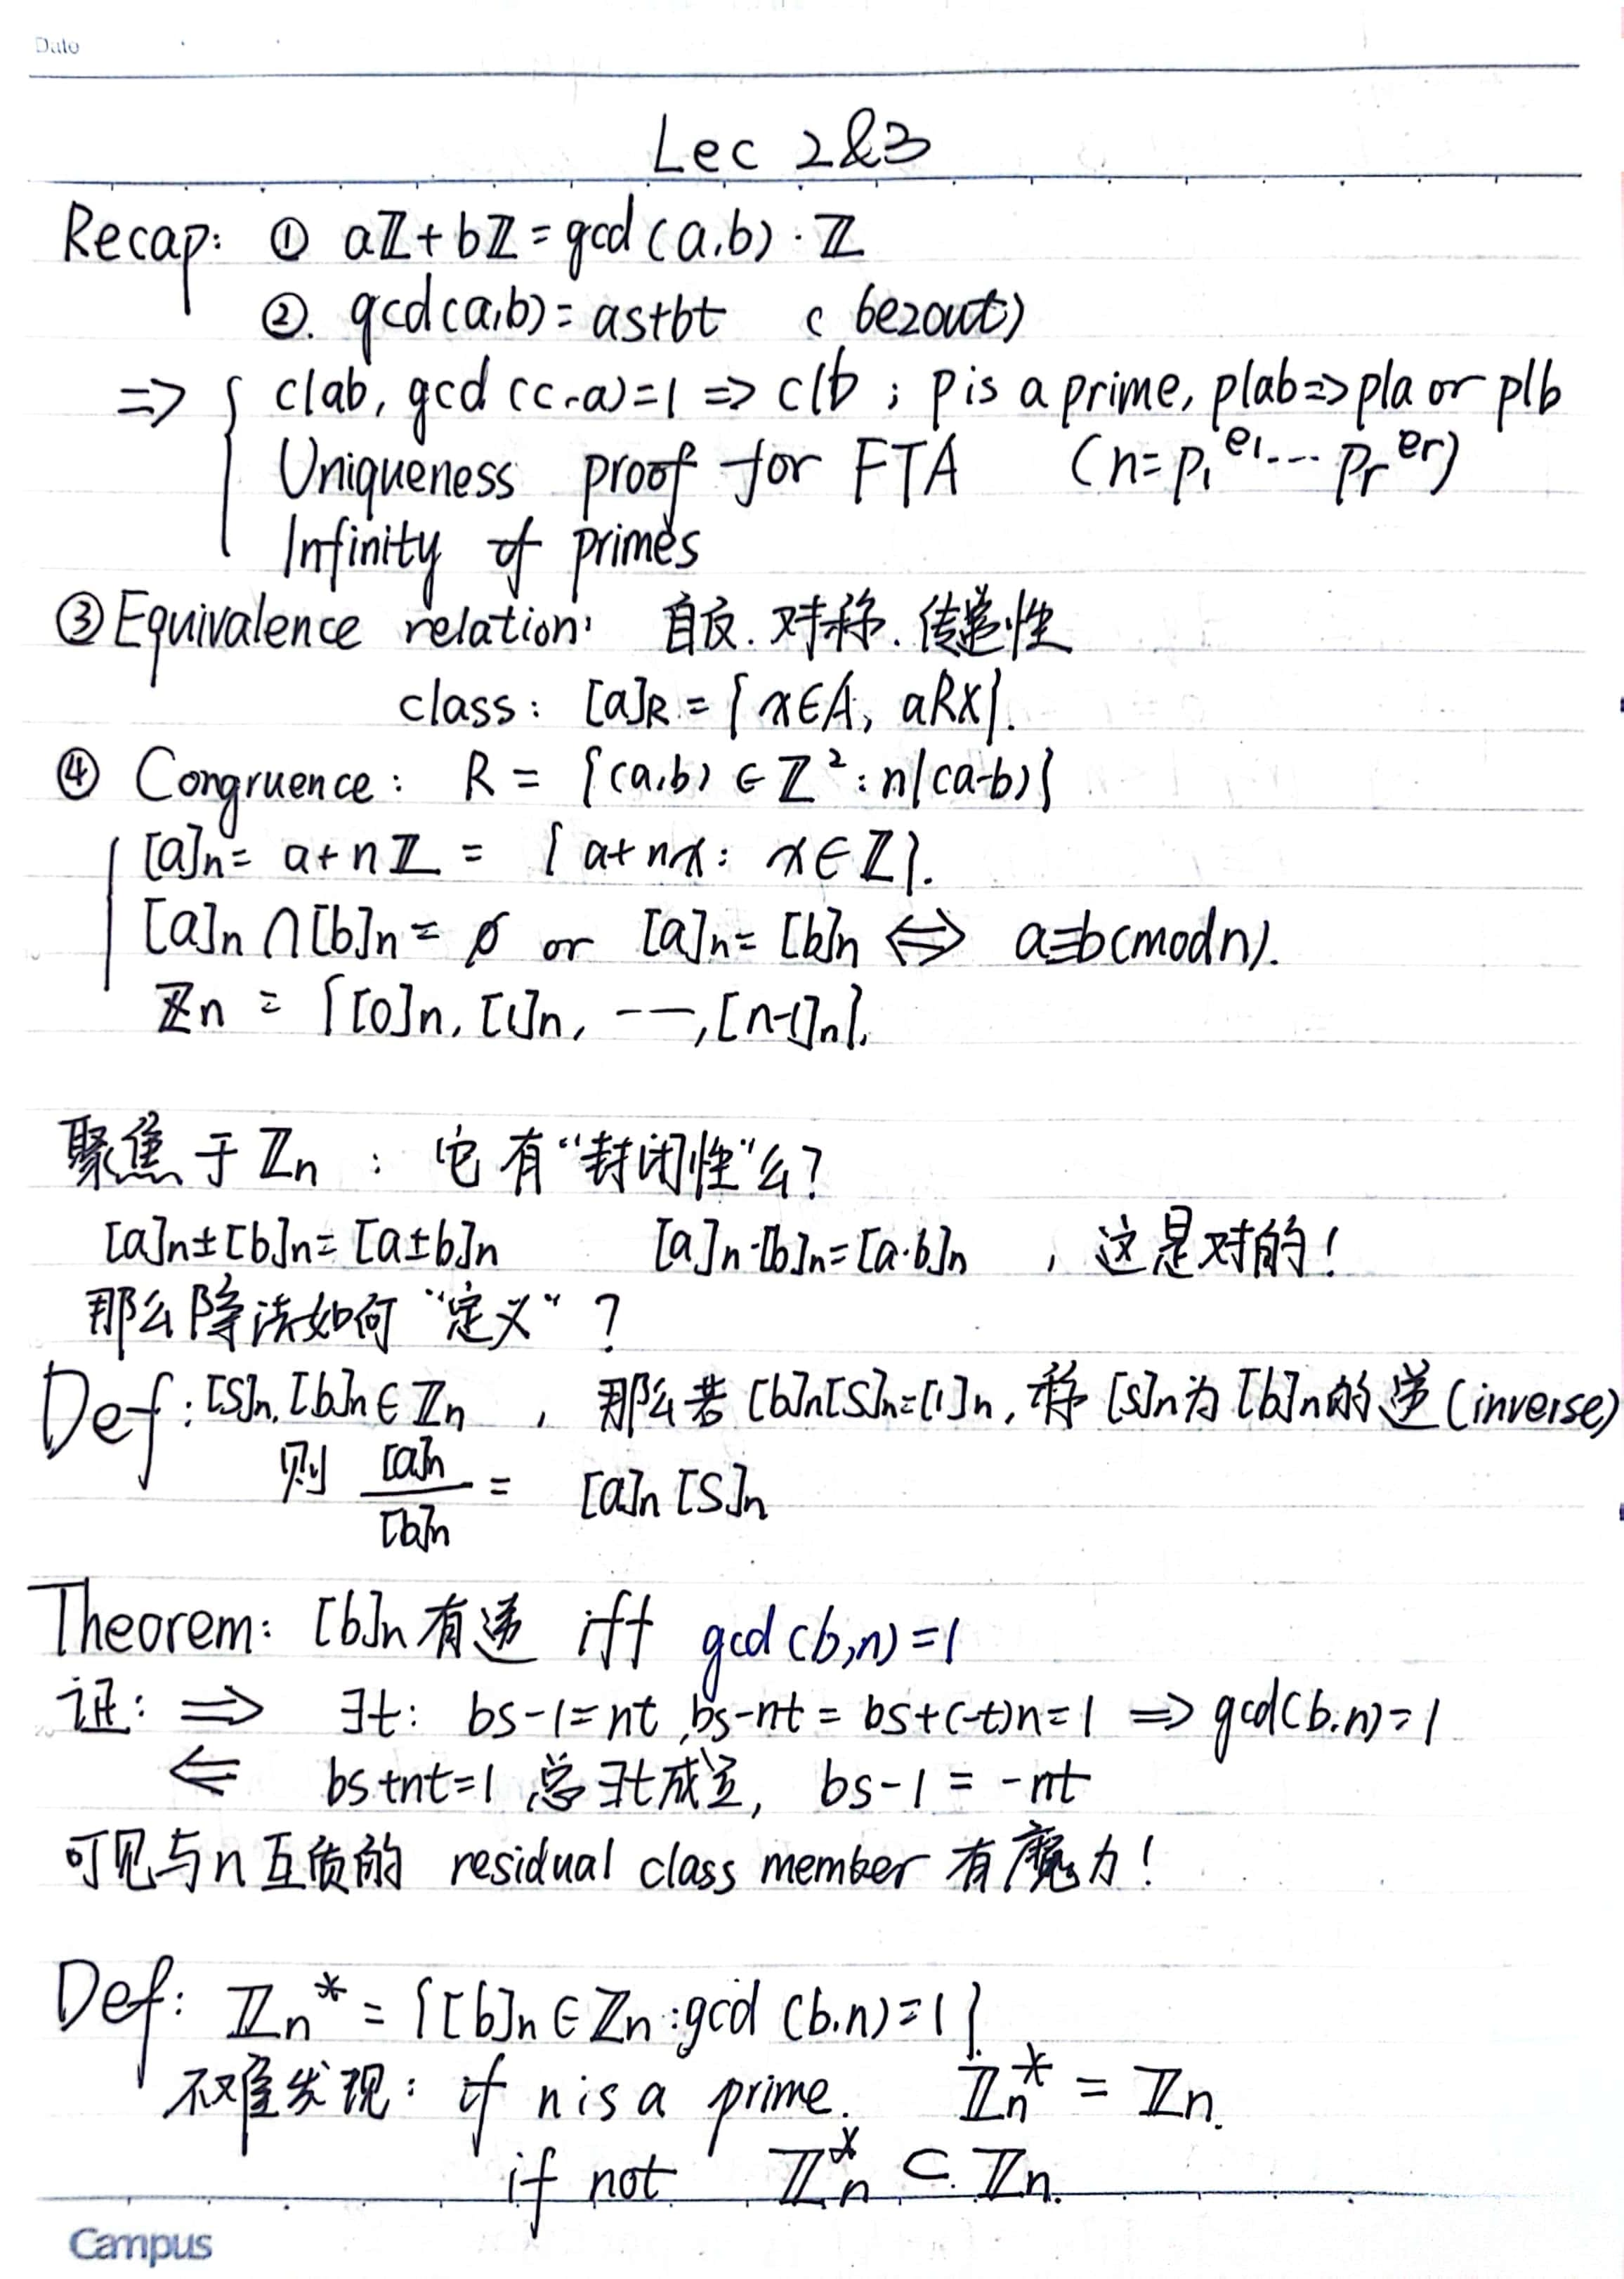 Date
Lec 2&3
Recap: ① aℤ+bℤ=gcd(a,b)·ℤ
②. gcd(a,b)= as+bt (bezout)
⇒ { c|ab, gcd(c,a)=1 ⇒ c|b ; p is a prime, p|ab ⇒ p|a or p|b
Uniqueness proof for FTA (n=p₁^e₁ ... pᵣ^eᵣ)
Infinity of primes
③ Equivalence relation: 自反. 对称. 传递性
class: [a]R = {x∈A, aRx}.
④ Congruence: R = {(a,b) ∈ ℤ²: n|(a-b)}
[a]n= a+nℤ = {a+nx: x∈ℤ}.
[a]n∩[b]n= ∅ or [a]n= [b]n ⇔ a≡b(mod n).
ℤn = {[0]n, [1]n, ---, [n-1]n}.
聚焦于ℤn : 它有“封闭性”么?
[a]n±[b]n=[a±b]n [a]n·[b]n=[a·b]n , 这是对的!
那么除法如何“定义”?
Def: [S]n, [b]n∈ℤn , 那么若[b]n[S]n=[1]n, 称[S]n为[b]n的逆(inverse)
则 [a]n/[b]n = [a]n[S]n
Theorem: [b]n有逆 iff gcd(b,n)=1
证: ⇒ ∃t: bs-1=nt, bs-nt = bs+(-t)n=1 ⇒ gcd(b,n)=1
⇐ bs+nt=1 总∃t成立, bs-1 = -nt
可见与n互质的 residual class member 有魔力!
Def: ℤn* = {[b]n∈ℤn :gcd(b,n)=1}.
不难发现: if n is a prime. ℤn* = ℤn.
if not ℤn* ⊂ ℤn.
Campus